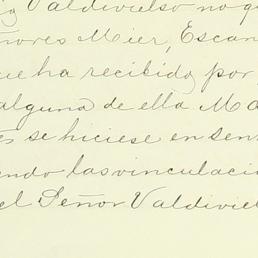 Valdivielso no q
ñores Mier, Escan
ue ha recibido por
alguna de ella Ma
es se hiciese en sen
endo las vinculacio
el Señor Valdivie